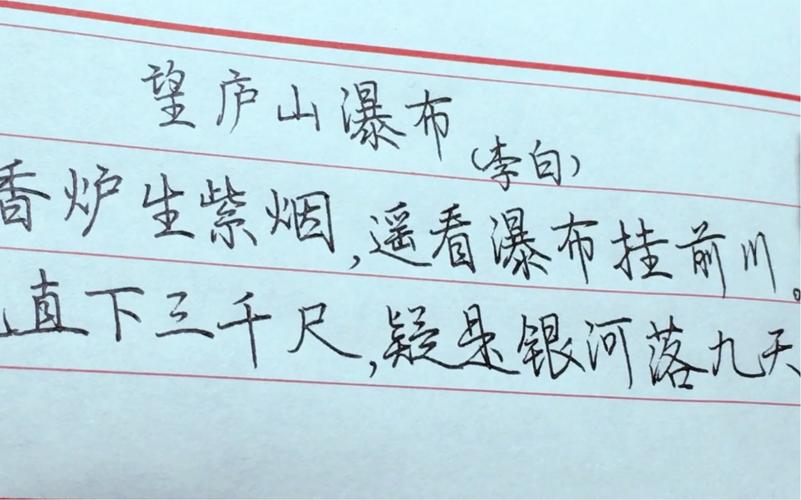 望庐山瀑布
(李白)
香炉生紫烟,遥看瀑布挂前川。
直下三千尺,疑是银河落九天